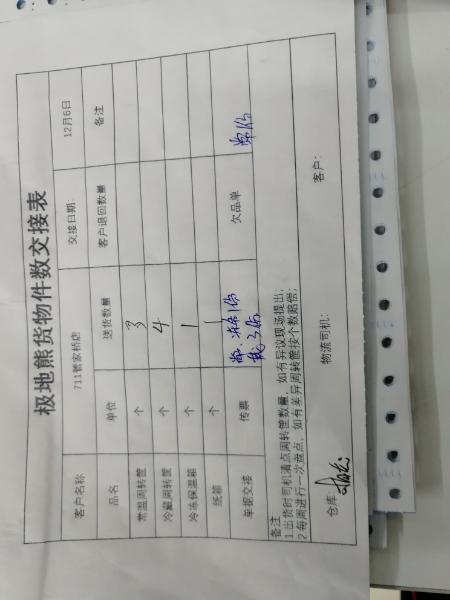 极地熊货物件数交接表
客户名称 711管家桥店 交接日期: 12月6日
品名 单位 送货数量 客户退回数量 备注
常温周转筐 个 3
冷藏周转筐 个 4
冷冻保温箱 个 1
纸箱 个 1
单据交接 传票 欠品单
备注:
1.出货时司机清点周转筐数量,如有异议现场提出;
2.每周进行一次盘点,如有差异周转筐按个数赔偿;
仓库: 物流司机: 客户: